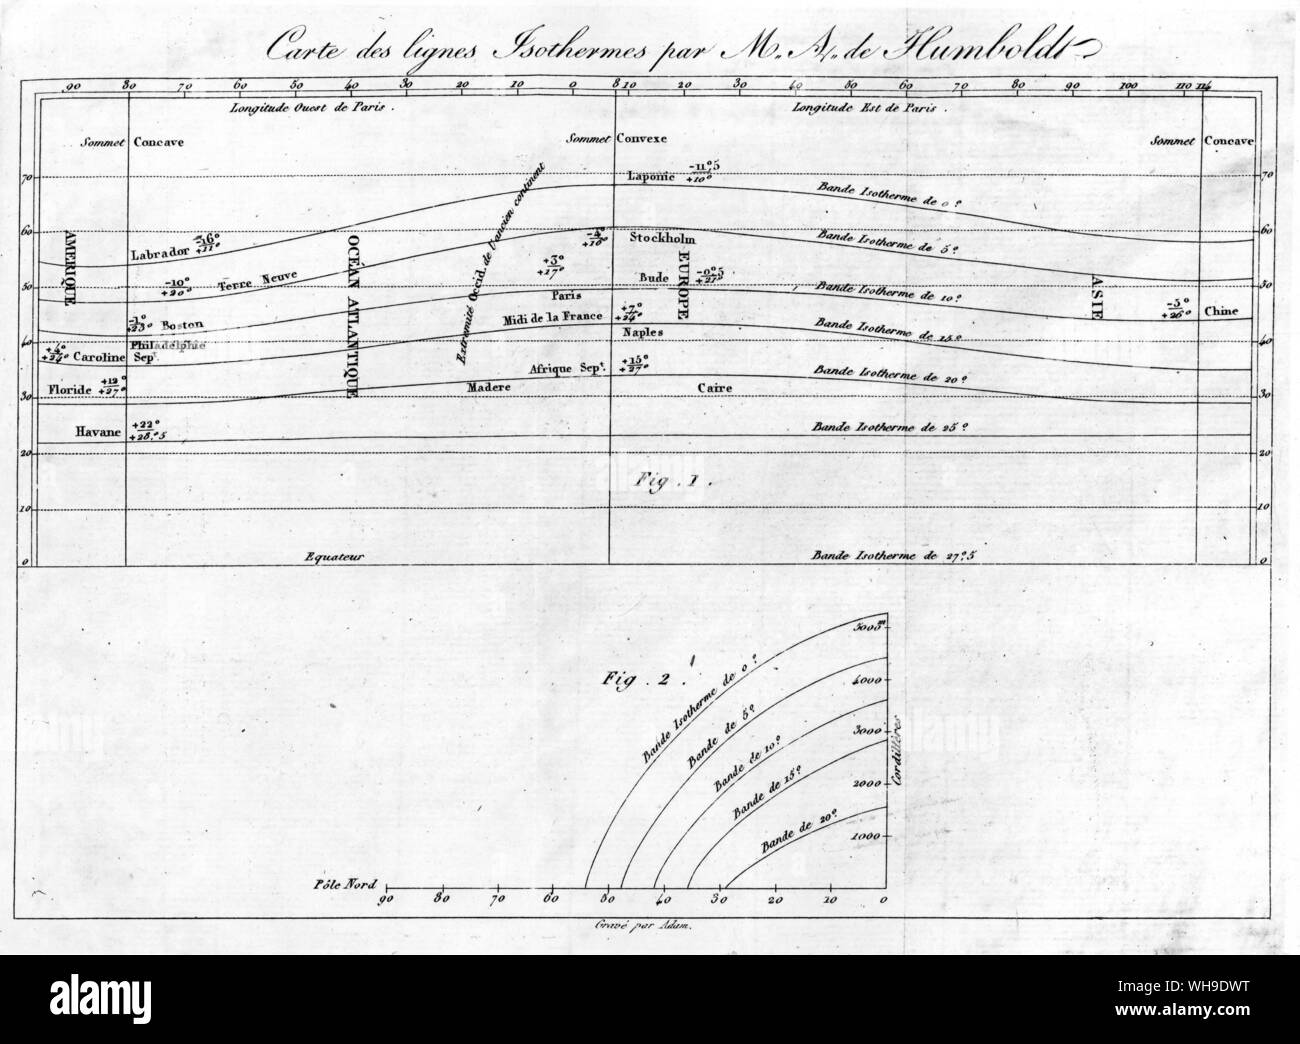 Carte des lignes Isothermes par M. A. de Humboldt
90 80 70 60 50 40 30 20 10 0 8 10 20 30 40 50 60 70 80 90 100 110 114
Longitude Ouest de Paris. Longitude Est de Paris.
Sommet Concave Sommet Convexe Sommet Concave
70 Laponie -11°,5 +10° Bande Isotherme de 0° 70
60 AMERIQUE Labrador -16° +11° OCÉAN ATLANTIQUE Extremité Occid. de l'ancien continent -4° +16° Stockholm Bande Isotherme de 5° 60
-10° +20° Terre Neuve +3° +17° Bude EUROPE -0°,5 +21° ASIE
50 Paris Bande Isotherme de 10° 50
-1° +23° Boston Midi de la France +7° +24° -5° +26° Chine
Philadelphie Naples Bande Isotherme de 15°
40 +4° +24° Caroline Sept. Afrique Sept. +15° +27° Bande Isotherme de 20° 40
Floride +12 +27° Madere Caire
30 30
Havane +22° +28°,5 Bande Isotherme de 25°
20 20
Fig. 1.
10 10
0 Equateur Bande Isotherme de 27°,5 0
5000m
Fig. 2. Bande Isotherme de 0°
4000
Bande de 5°
3000
Bande de 10° Cordillères
2000
Bande de 15°
1000
Bande de 20°
Pôle Nord
90 80 70 60 50 40 30 20 10 0
Gravé par Adam.
alamy
Image ID: WH9DWT
www.alamy.com